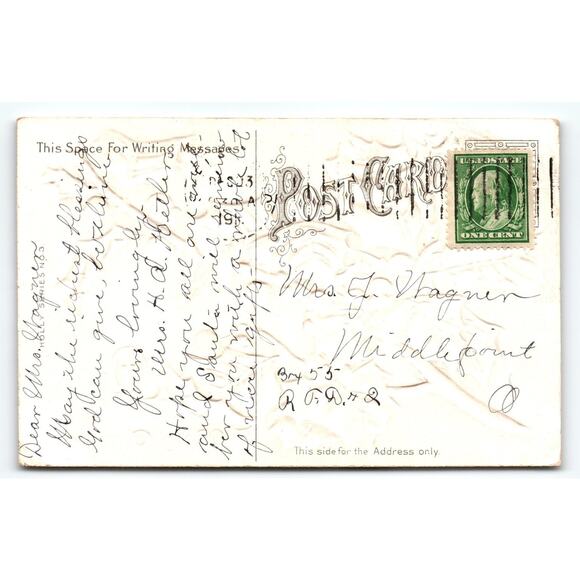 This Space For Writing Messages
Dear Mrs. Wagner
May the richest blessings
God can give, be thine
Yours lovingly
Mrs. H. L.
Hope you all are
and Santa will
ber you with a
of nice gifts
HOLLY SERIES 103
POST CARD
U.S. POSTAGE
ONE CENT
Mrs. J. Wagner
Middlepoint
Box 55
R F D. # 2
O
This side for the Address only.